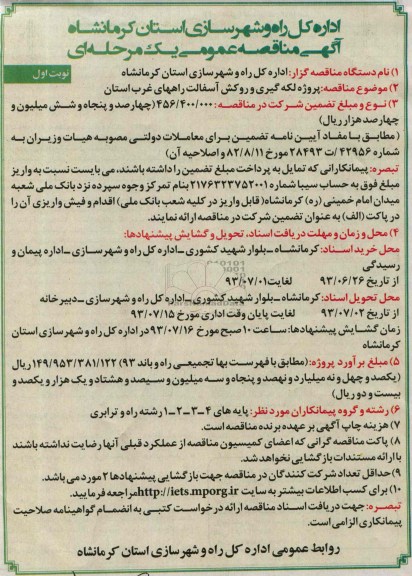 اداره کل راه و شهرسازی استان کرمانشاه
آگهی مناقصه عمومی یک مرحله‌ای
نوبت اول
۱) نام دستگاه مناقصه گزار: اداره کل راه و شهرسازی استان کرمانشاه
۲) موضوع مناقصه: پروژه لکه گیری و روکش آسفالت راههای غرب استان
۳) نوع و مبلغ تضمین شرکت در مناقصه: ۴۵۶/۴۰۰/۰۰۰ (چهارصد و پنجاه و شش میلیون و
چهارصد هزار ریال)
(مطابق با مفاد آیین نامه تضمین برای معاملات دولتی مصوبه هیات وزیران به
شماره ۴۲۹۵۶ /ت ۲۸۴۹۳ مورخ ۸۲/۸/۱۱ و اصلاحیه آن)
تبصره: پیمانکارانی که تمایل به پرداخت مبلغ تضمین را داشته باشند، می بایست نسبت به واریز
مبلغ فوق به حساب سیبا شماره ۲۱۷۶۳۲۳۷۵۲۰۰۱ بنام تمرکز وجوه سپرده نزد بانک ملی شعبه
میدان امام خمینی (ره) کرمانشاه (قابل واریز در کلیه شعب بانک ملی) اقدام و فیش واریزی آن را
در پاکت (الف) به عنوان تضمین شرکت در مناقصه ارائه نمایند.
۴) محل و زمان و مهلت دریافت اسناد، تحویل و گشایش پیشنهادها:
محل خرید اسناد: کرمانشاه_بلوار شهید کشوری_اداره کل راه و شهرسازی_اداره پیمان و
رسیدگی
از تاریخ ۹۳/۰۶/۲۶ لغایت ۹۳/۰۷/۰۱
محل تحویل اسناد: کرمانشاه_بلوار شهید کشوری_اداره کل راه و شهرسازی_دبیرخانه
از تاریخ ۹۳/۰۷/۰۲ لغایت پایان وقت اداری مورخ ۹۳/۰۷/۱۵
زمان گشایش پیشنهادها: ساعت ۱۰ صبح مورخ ۹۳/۰۷/۱۶ در اداره کل راه و شهرسازی استان
کرمانشاه
۵) مبلغ برآورد پروژه: (مطابق با فهرست بها تجمیعی راه و باند ۹۳) ۱۴۹/۹۵۳/۳۸۱/۱۲۲ ریال
(یکصد و چهل و نه میلیارد و نهصد و پنجاه و سه میلیون و سیصد و هشتاد و یک هزار و یکصد و
بیست و دو ریال)
۶) رشته و گروه پیمانکاران مورد نظر: پایه های ۴_۳_۲_۱ رشته راه و ترابری
۷) هزینه چاپ آگهی بر عهده برنده مناقصه است.
۸) پاکت مناقصه گرانی که اعضای کمیسیون مناقصه از عملکرد قبلی آنها رضایت نداشته باشند
با ارائه مستندات بازگشایی نخواهد شد.
۹) حداقل تعداد شرکت کنندگان در مناقصه جهت بازگشایی پیشنهادها ۲ مورد می باشد.
۱۰) برای کسب اطلاعات بیشتر به سایت http://iets.mporg.ir مراجعه فرمایید.
تبصره: جهت دریافت اسناد مناقصه ارائه درخواست کتبی به انضمام گواهینامه صلاحیت
پیمانکاری الزامی است.
روابط عمومی اداره کل راه و شهرسازی استان کرمانشاه